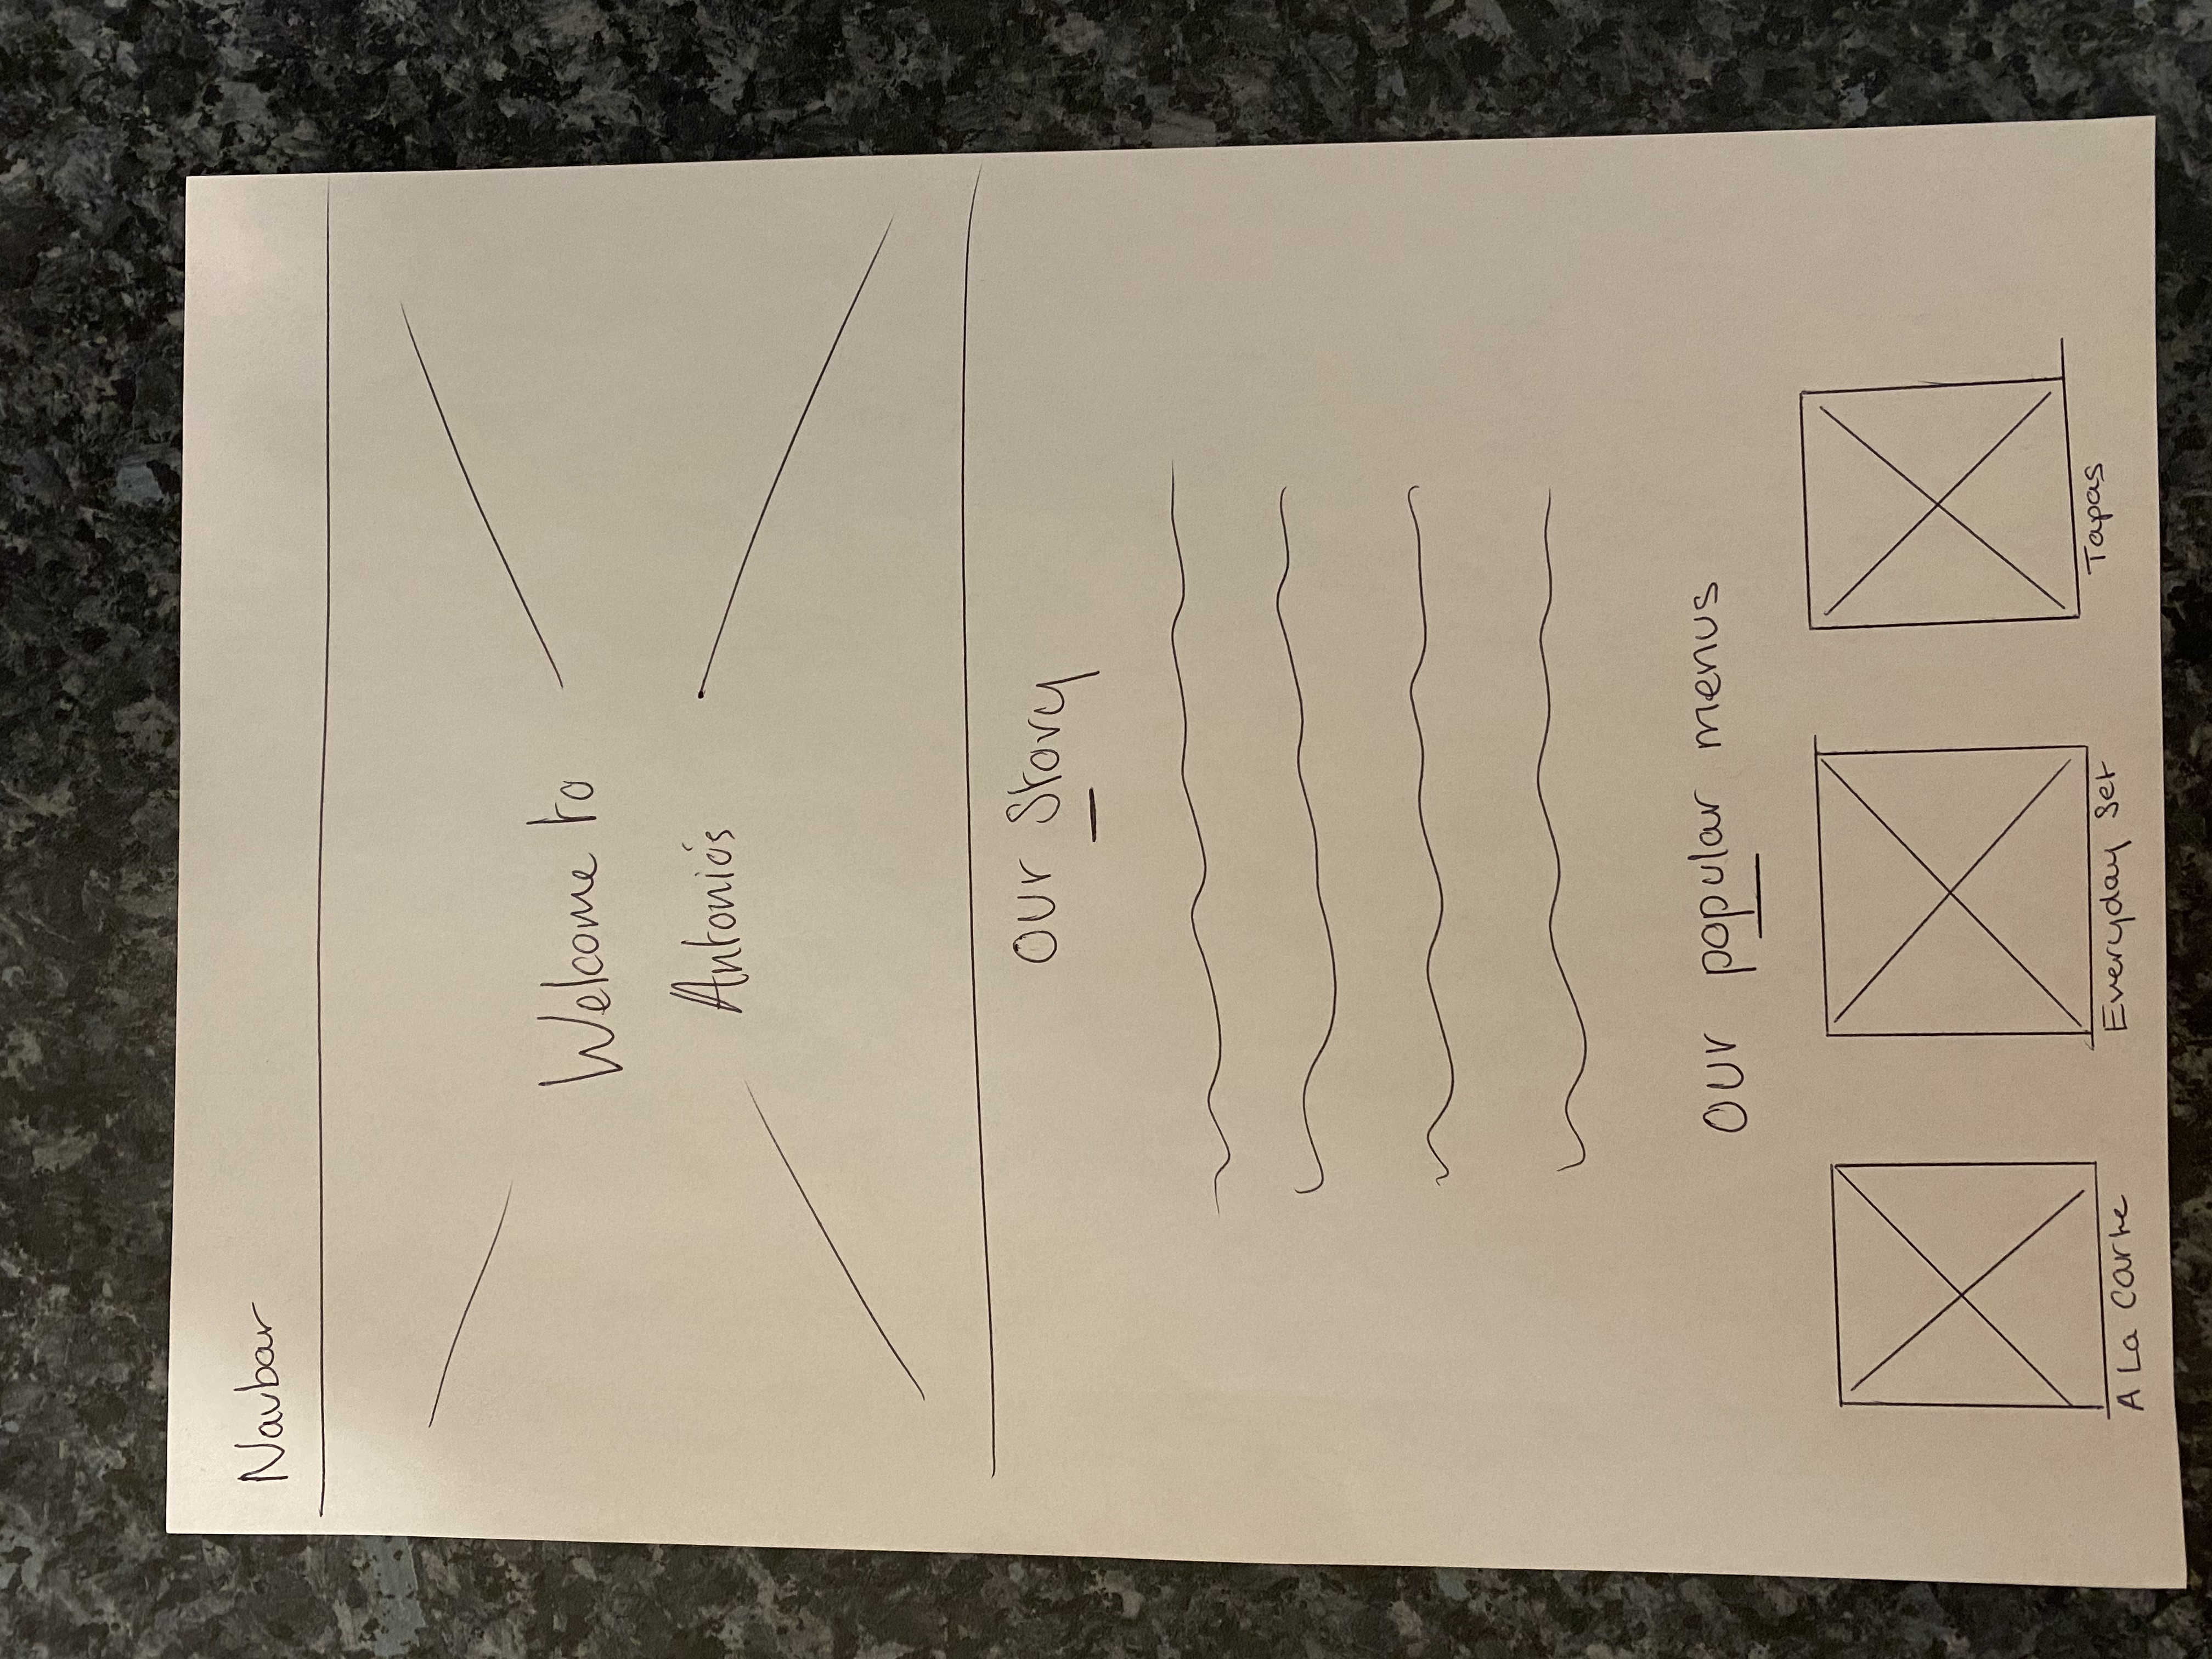 Navbar
Welcome to
Antonio's
Our Story
Our popular menus
A La Carte
Everyday Set
Tapas